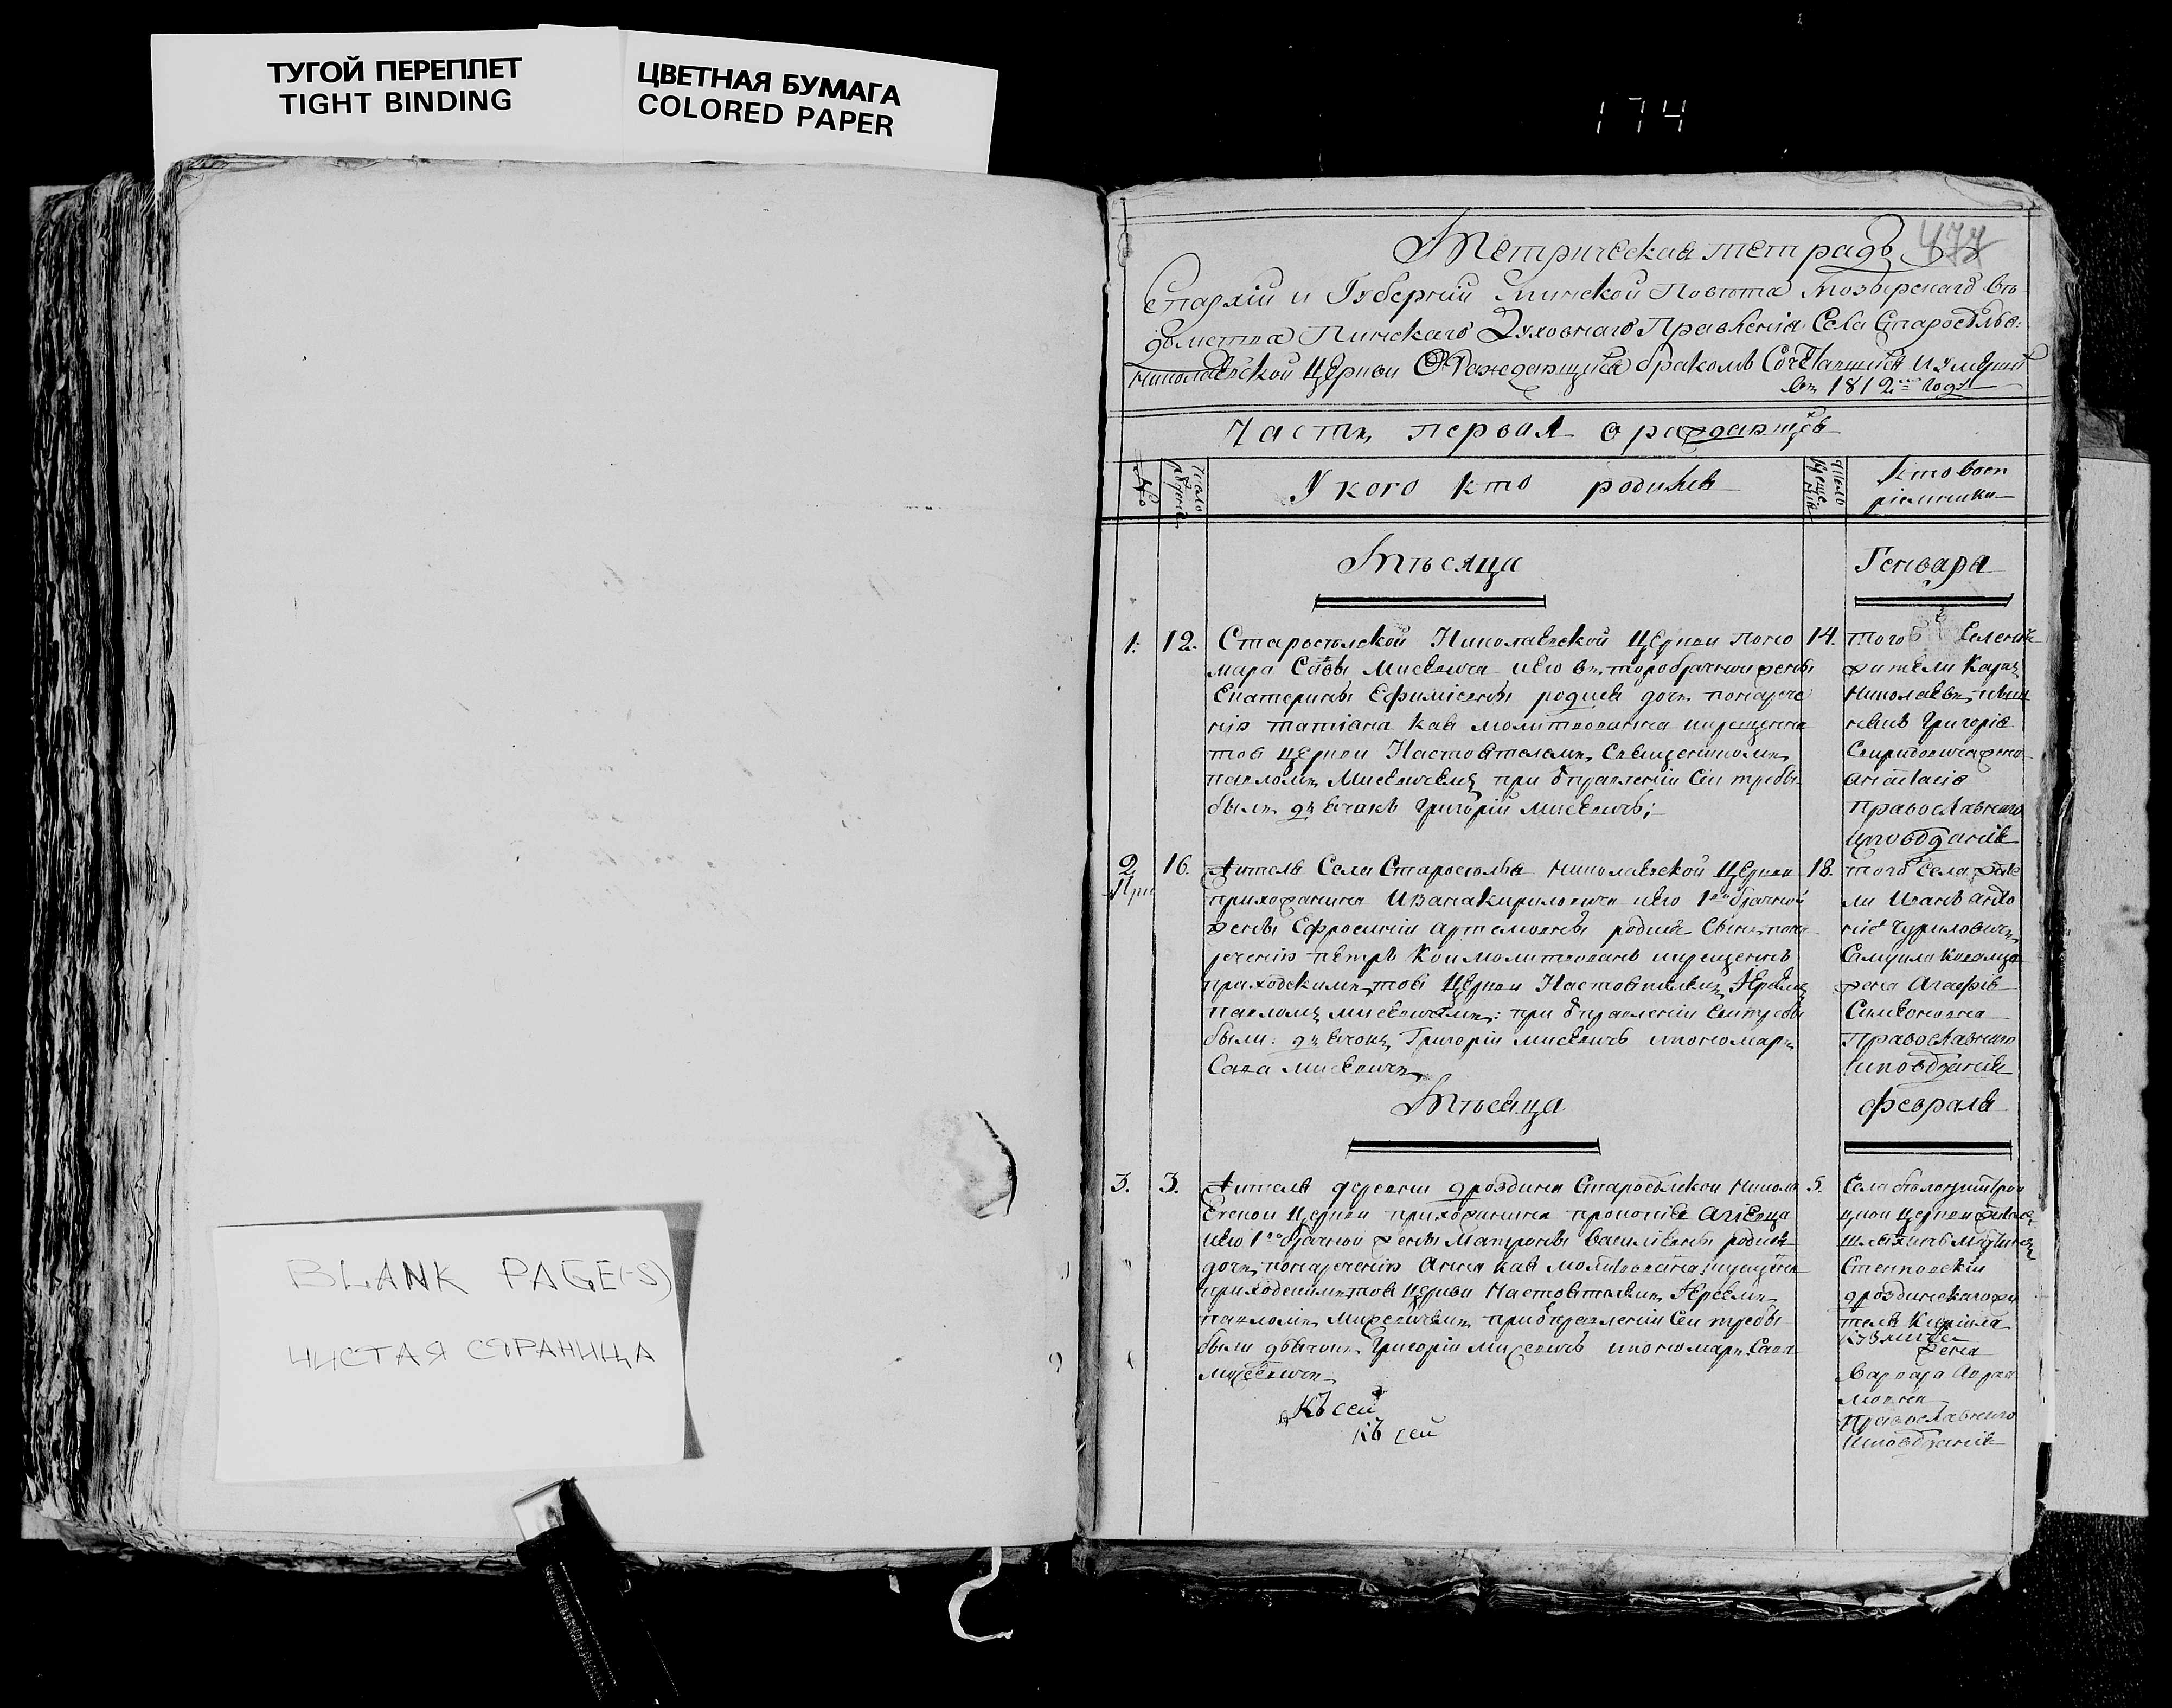 ТУГОЙ ПЕРЕПЛЕТ
TIGHT BINDING
ЦВЕТНАЯ БУМАГА
COLORED PAPER
174
BLANK PAGE(-S)
ЧИСТАЯ СТРАНИЦА
477
Метрическая тетрадь
Епархіи и Губерніи Минской Повѣта Мозырскаго вѣ
домства Пинскаго Духовнаго Правленія Села Староселья
Николаевской Церкви О Раждающихся бракомъ Сочетавшихся и умершихъ
въ 1812м году
Часть первая о раждающихся
№
Число рожденія
У кого кто родился
Число крещенія
Кто восп
ріемники
Мѣсяца
Генваря
1.
12.
Старосельской Николаевской Церкви Поно
маря Савы Мисевича и его второбрачной жены
Екатерины Ефиміевны родися дочь понарече
нію Татіана кая молитвованна и крещенна
тоя Церкви Настоятелемъ Священникомъ
Павломъ Мисевичемъ при отправленіи сей требы
былъ дьячокъ Григорій Мисевичъ;
14.
того Селенія
жители
Николаевъ
Григорія
Свиридовича жена
Анастасія
Православнаго
исповѣданія
2
При
16.
Житель Села Староселья Николаевской Церкви
прихожанина Ивана Кириловича и его 1о брачной
жены Ефросиніи Артемовны родися Сынъ пона
реченію Петръ кой молитвованъ и крещенъ
приходскимъ тоя Церкви Настоятелемъ Іереемъ
Павломъ Мисевичемъ: при отправленіи сей требы
были: дьячокъ Григорій Мисевичъ и пономарь
Сава Мисевичъ
18.
того Села жите
ли Иванъ
Самуила
жена Агафія
Симеоновна
Православнаго
исповѣданія
Мѣсяца
Февраля
3.
3.
Житель деревни Дроздиня Старосельской Никола
евской Церкви прихожанина Прокопія
и его 1о брачной жены Матроны Василіевны родися
дочь понареченію Анна кая молитвованна и крещена
приходскимъ тоя Церкви Настоятелемъ Іереемъ
Павломъ Мисевичемъ при отправленіи сей требы
были дьячокъ Григорій Мисевичъ и пономарь Сава
Мисевичъ
Къ сей
Къ сей
5.
Села
Церкви
Дроздинскаго жи
тель Кирила
жена
Варвара Авраа
мовна
Православнаго
исповѣданія